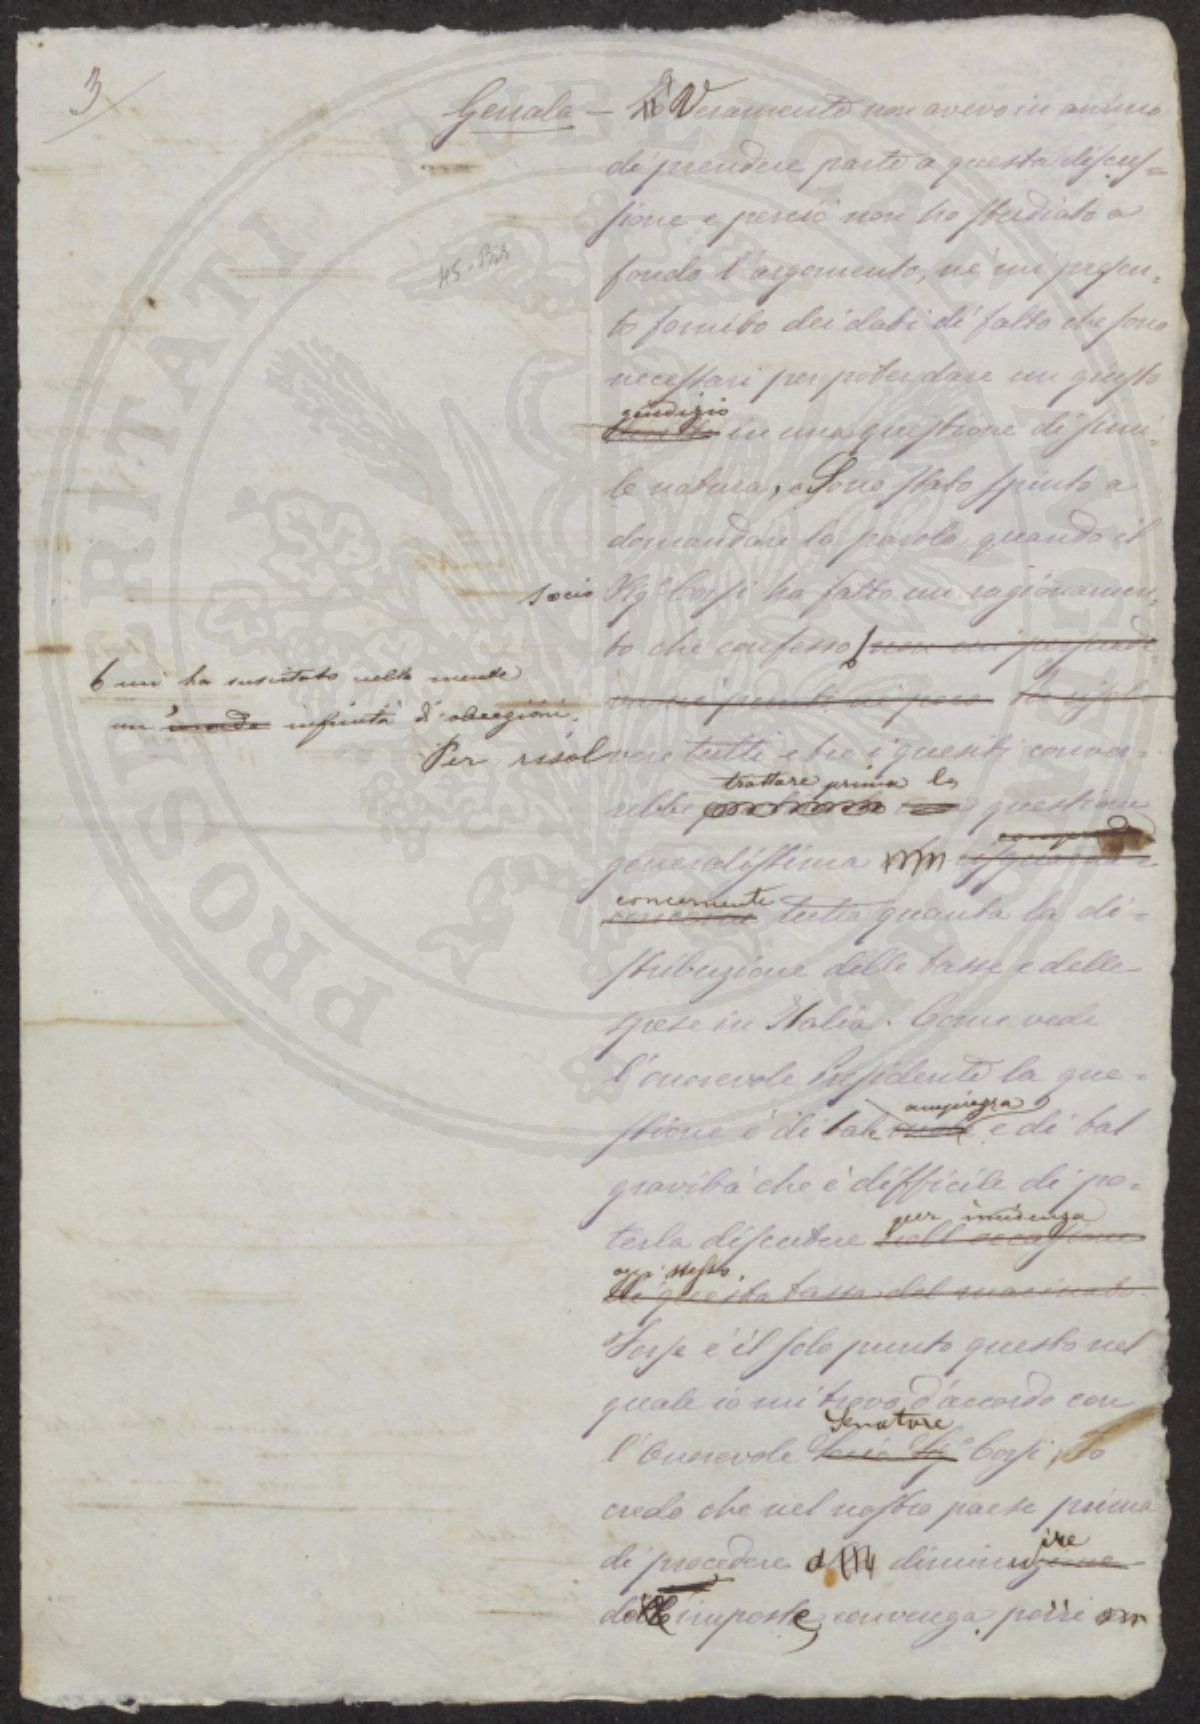 3
Genala - Veramente non avevo in animo
di prendere parte a questa discus=
sione e perciò non ho studiato a
45-Bis
fondo l'argomento, nè mi presen=
to fornito dei dati di fatto che sono
necessari per poter dare un giusto
giudizio
in una quistione di simi=
le natura, e Sono stato spinto a
domandare la parola quando il
socio Sig.e Corsi ha fatto un ragionamen=
to che confesso non mi persuade
mi ha suscitato nella mente
nè punto nè poco
un' infinità di obiezioni.
Per risolvere tutti e tre i quesiti conver=
trattare prima la
rebbe questione
generalissima
concernente
tutta quanta la di=
stribuzione delle tasse e delle
spese in Italia. Come vede
l'onorevole Presidente la que=
ampiezza
stione è di tale e di tal
gravità che è difficile di po=
per incidenza
terla discutere nell'occasione
oggi stesso.
di questa tassa del macinato.
Forse è il solo punto questo nel
quale io mi trovo d'accordo con
Senatore
l'Onorevole Socio Sig.e Corsi; Io
credo che nel nostro paese prima
ire
di procedere a diminuzione
delle imposte, convenga porre
PROSPERITATI PUBLICAE AUGENDAE